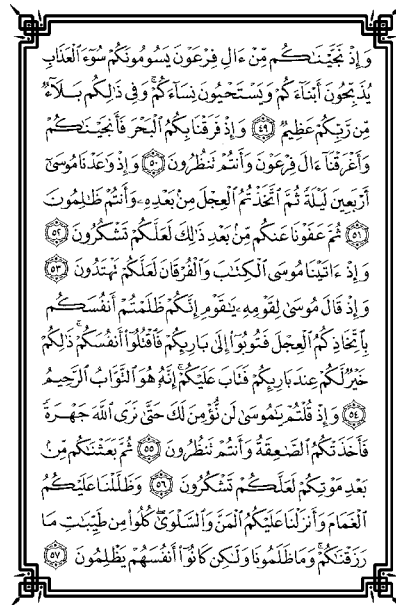 وَإِذْ نَجَّيْنَٰكُم مِّنْ ءَالِ فِرْعَوْنَ يَسُومُونَكُمْ سُوٓءَ ٱلْعَذَابِ
يُذَبِّحُونَ أَبْنَآءَكُمْ وَيَسْتَحْيُونَ نِسَآءَكُمْ ۚ وَفِى ذَٰلِكُم بَلَآءٌ
مِّن رَّبِّكُمْ عَظِيمٌ ٤٩ وَإِذْ فَرَقْنَا بِكُمُ ٱلْبَحْرَ فَأَنجَيْنَٰكُمْ
وَأَغْرَقْنَآ ءَالَ فِرْعَوْنَ وَأَنتُمْ تَنظُرُونَ ٥٠ وَإِذْ وَٰعَدْنَا مُوسَىٰٓ
أَرْبَعِينَ لَيْلَةً ثُمَّ ٱتَّخَذْتُمُ ٱلْعِجْلَ مِنۢ بَعْدِهِۦ وَأَنتُمْ ظَٰلِمُونَ
٥١ ثُمَّ عَفَوْنَا عَنكُم مِّنۢ بَعْدِ ذَٰلِكَ لَعَلَّكُمْ تَشْكُرُونَ ٥٢
وَإِذْ ءَاتَيْنَا مُوسَى ٱلْكِتَٰبَ وَٱلْفُرْقَانَ لَعَلَّكُمْ تَهْتَدُونَ ٥٣
وَإِذْ قَالَ مُوسَىٰ لِقَوْمِهِۦ يَٰقَوْمِ إِنَّكُمْ ظَلَمْتُمْ أَنفُسَكُم
بِٱتِّخَاذِكُمُ ٱلْعِجْلَ فَتُوبُوٓا۟ إِلَىٰ بَارِئِكُمْ فَٱقْتُلُوٓا۟ أَنفُسَكُمْ ذَٰلِكُمْ
خَيْرٌ لَّكُمْ عِندَ بَارِئِكُمْ فَتَابَ عَلَيْكُمْ ۚ إِنَّهُۥ هُوَ ٱلتَّوَّابُ ٱلرَّحِيمُ
٥٤ وَإِذْ قُلْتُمْ يَٰمُوسَىٰ لَن نُّؤْمِنَ لَكَ حَتَّىٰ نَرَى ٱللَّهَ جَهْرَةً
فَأَخَذَتْكُمُ ٱلصَّٰعِقَةُ وَأَنتُمْ تَنظُرُونَ ٥٥ ثُمَّ بَعَثْنَٰكُم مِّنۢ
بَعْدِ مَوْتِكُمْ لَعَلَّكُمْ تَشْكُرُونَ ٥٦ وَظَلَّلْنَا عَلَيْكُمُ
ٱلْغَمَامَ وَأَنزَلْنَا عَلَيْكُمُ ٱلْمَنَّ وَٱلسَّلْوَىٰ ۖ كُلُوا۟ مِن طَيِّبَٰتِ مَا
رَزَقْنَٰكُمْ ۖ وَمَا ظَلَمُونَا وَلَٰكِن كَانُوٓا۟ أَنفُسَهُمْ يَظْلِمُونَ ٥٧